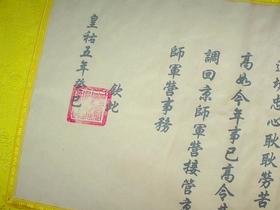 邊城忠心耿耿勞苦
高如今年事已高令其
調回京師軍營接管京
師軍營事務
欽此
皇祐五年癸巳